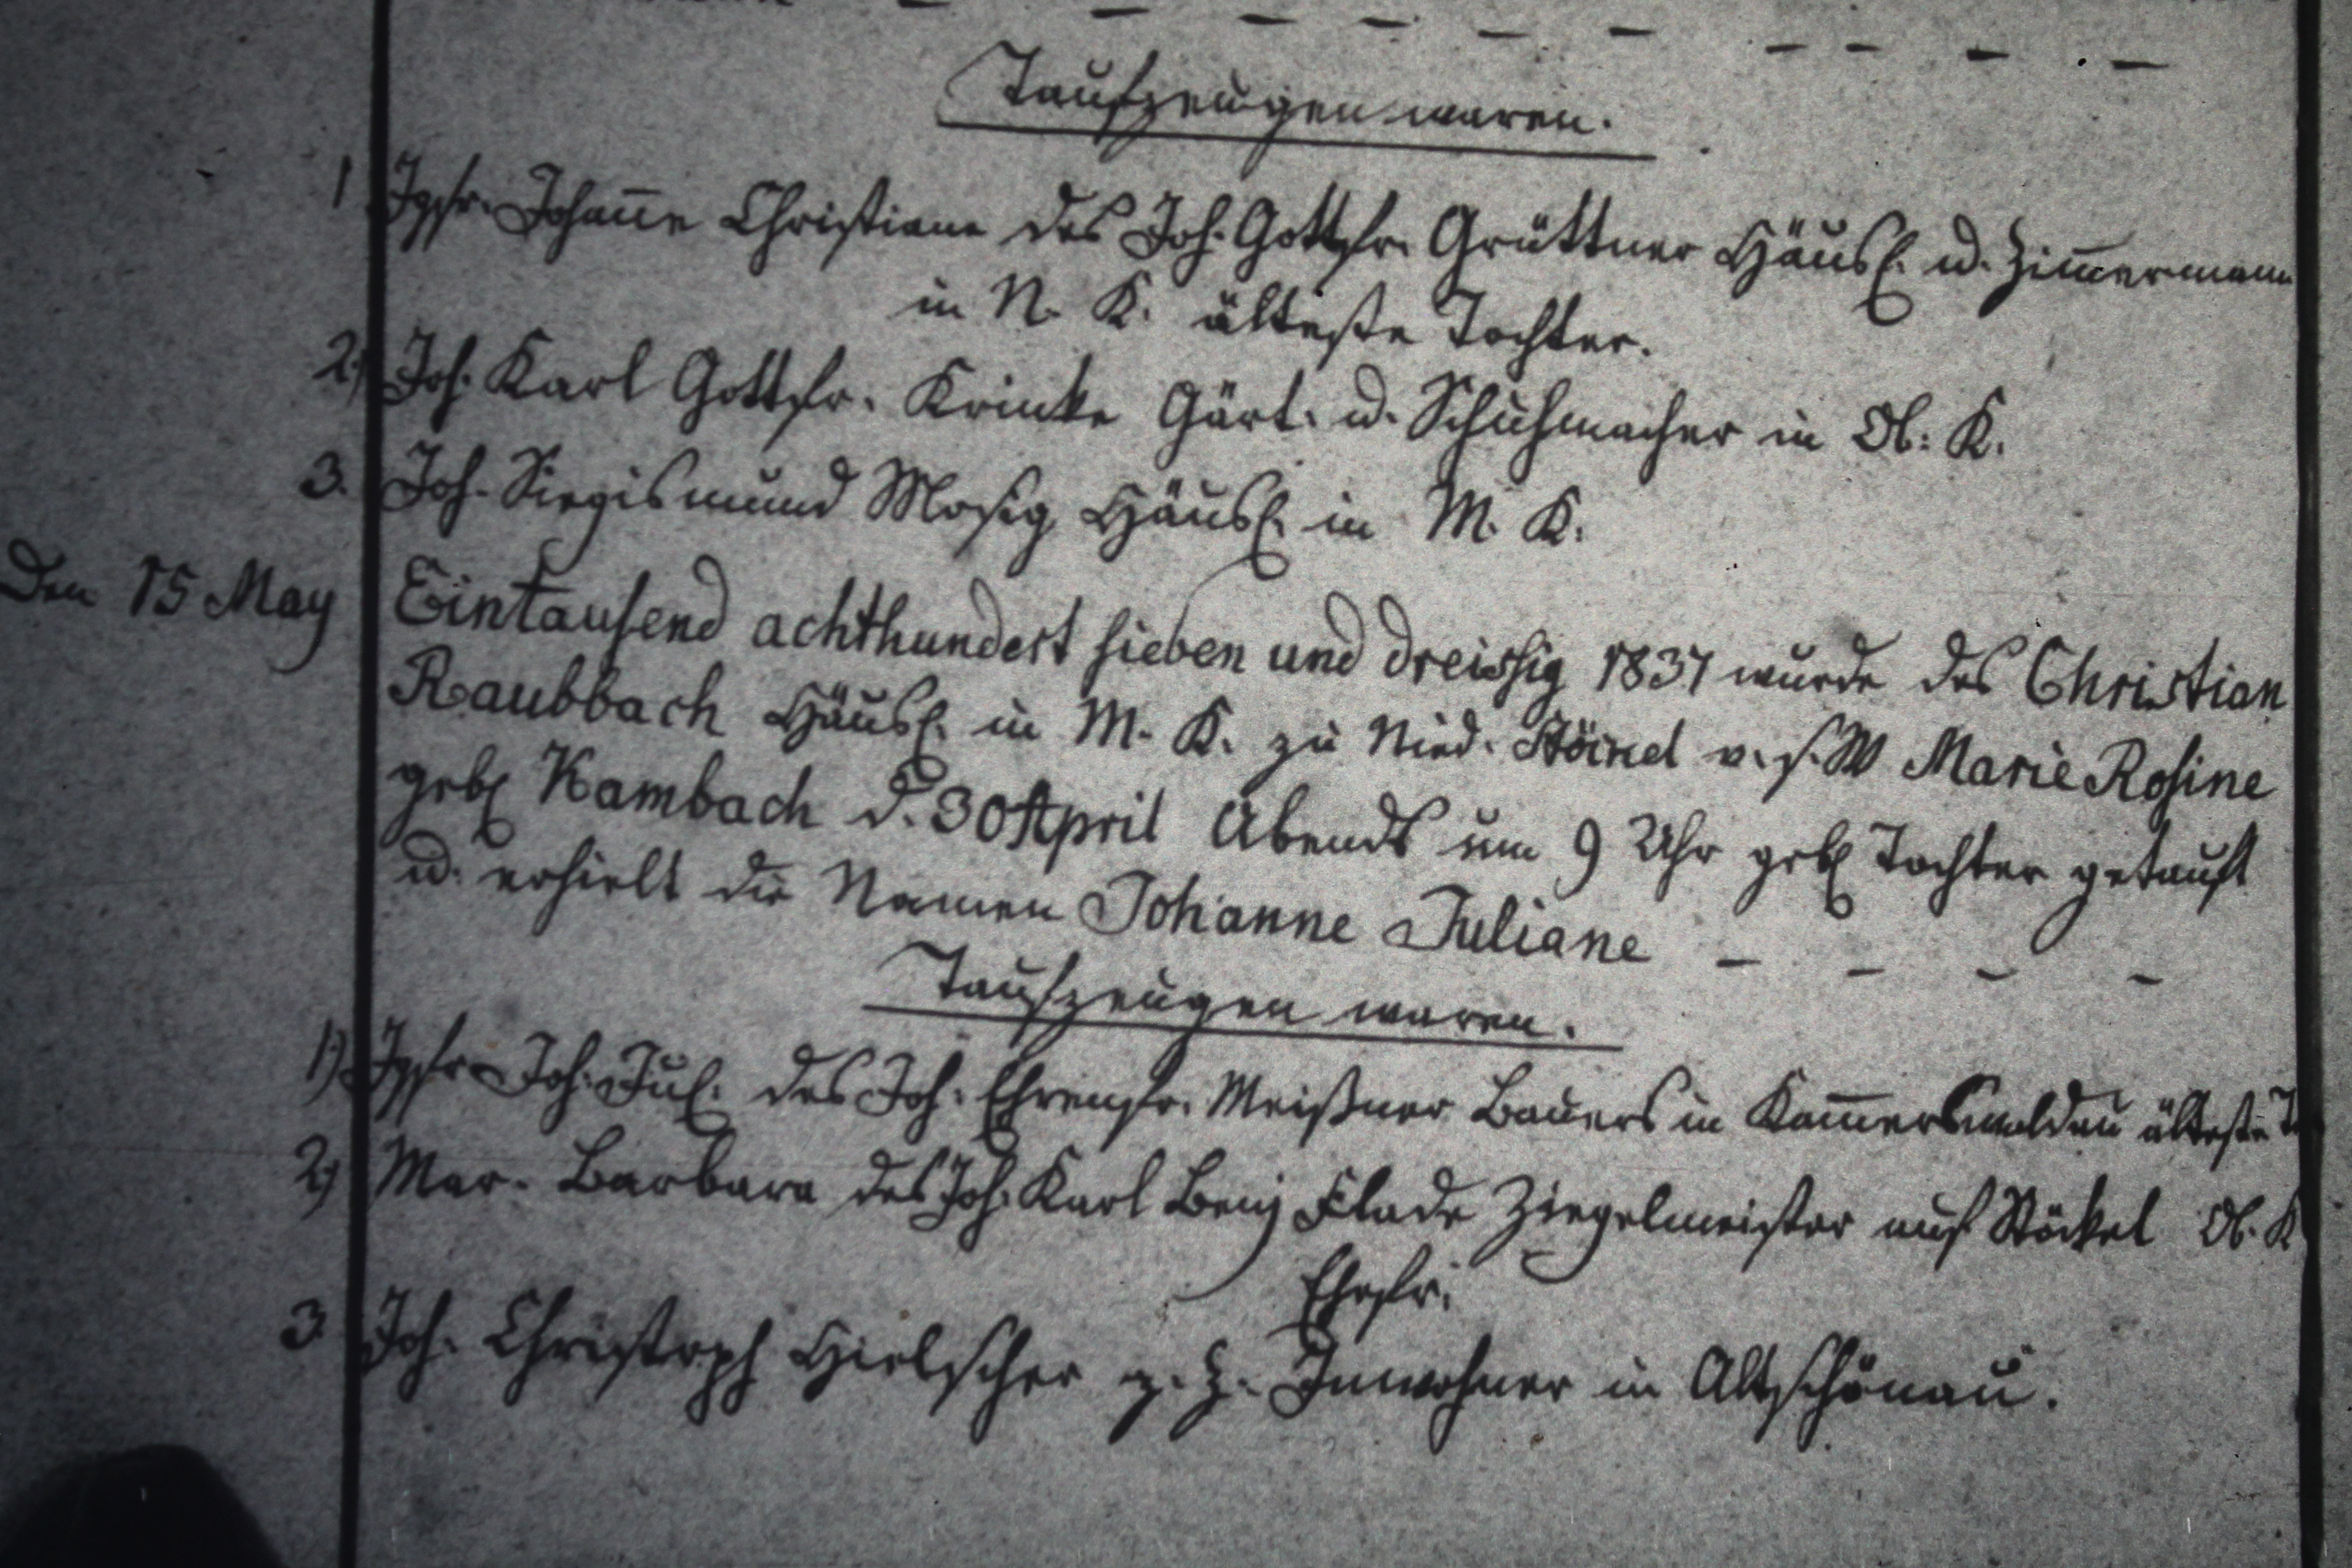 Taufzeugen waren.
1 Jgfr. Johan̅e Christiane des Joh. Gottfr. Grüttner Häusl. u. Zim̅ermann
in N. K. älteste Tochter.
2.) Joh. Karl Gottfr. Krinke Gärt. u. Schuhmacher in Ob: K.
3. Joh. Siegismund Mosig Häusl. in M. K.
Den 15 May Eintausend achthundert sieben und dreissig 1837 wurde des Christian
Raubbach Häusl. in M. K. zu Nied. v. s. W Marie Rosine
geb. Kambach d. 30 April Abends um 9 Uhr geb. Tochter getauft
u. erhielt die Namen Johanne Juliane - - - -
Taufzeugen waren.
1) Jgfr Joh. Jul. des Joh. Ehrenfr. Meißner Bauers in Kam̅erswaldau älteste T
2) Mar. Barbara des Joh. Karl Benj Flade Ziegelmeister auf Stöckel Ob. K
Ehefr.
3 Joh. Christoph Hielscher z. Z. Inwohner in Altschönau.